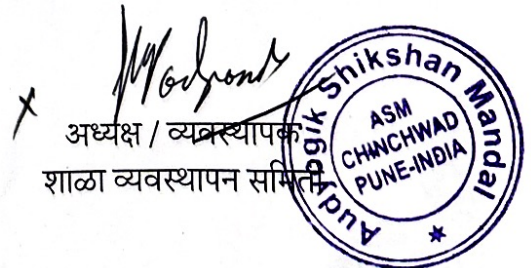 अध्यक्ष / व्यवस्थापक
शाळा व्यवस्थापन समिती
Audyogik Shikshan Mandal
ASM
CHINCHWAD
PUNE-INDIA